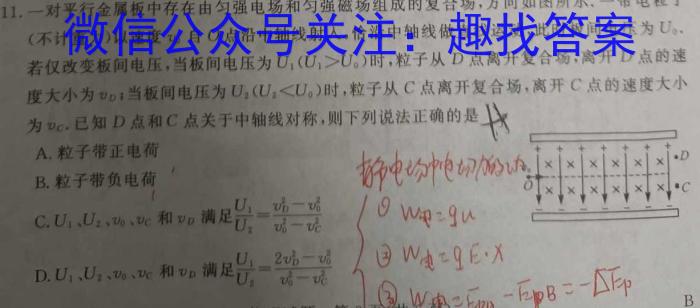 11. 一对平行金属板中存在由匀强电场和匀强磁场组成的复合场,方向如图所示、一带电粒子
(不计
微信公众号关注：趣找答案
压为 U₀。
若仅改变板间电压,当板间电压为 U₁(U₁>U₀)时,粒子从 D 点离开复合场,离开 D 点的速
度大小为 v_D;当板间电压为 U₂(U₂<U₀)时,粒子从 C 点离开复合场,离开 C 点的速度大小
为 v_C。已知 D 点和 C 点关于中轴线对称,则下列说法正确的是
A. 粒子带正电荷
B. 粒子带负电荷
C. U₁、U₂、v₀、v_C 和 v_D 满足 U₁/U₂ = (v_D²-v₀²)/(v₀²-v_C²)
D. U₁、U₂、v₀、v_C 和 v_D 满足 U₁/U₂ = (2v_D²-v₀²)/(v₀²-v_C²)
O
D
C
① W电=qU
② W电=qE·X
③ W电=E_pA-E_pB=-ΔE_p
B